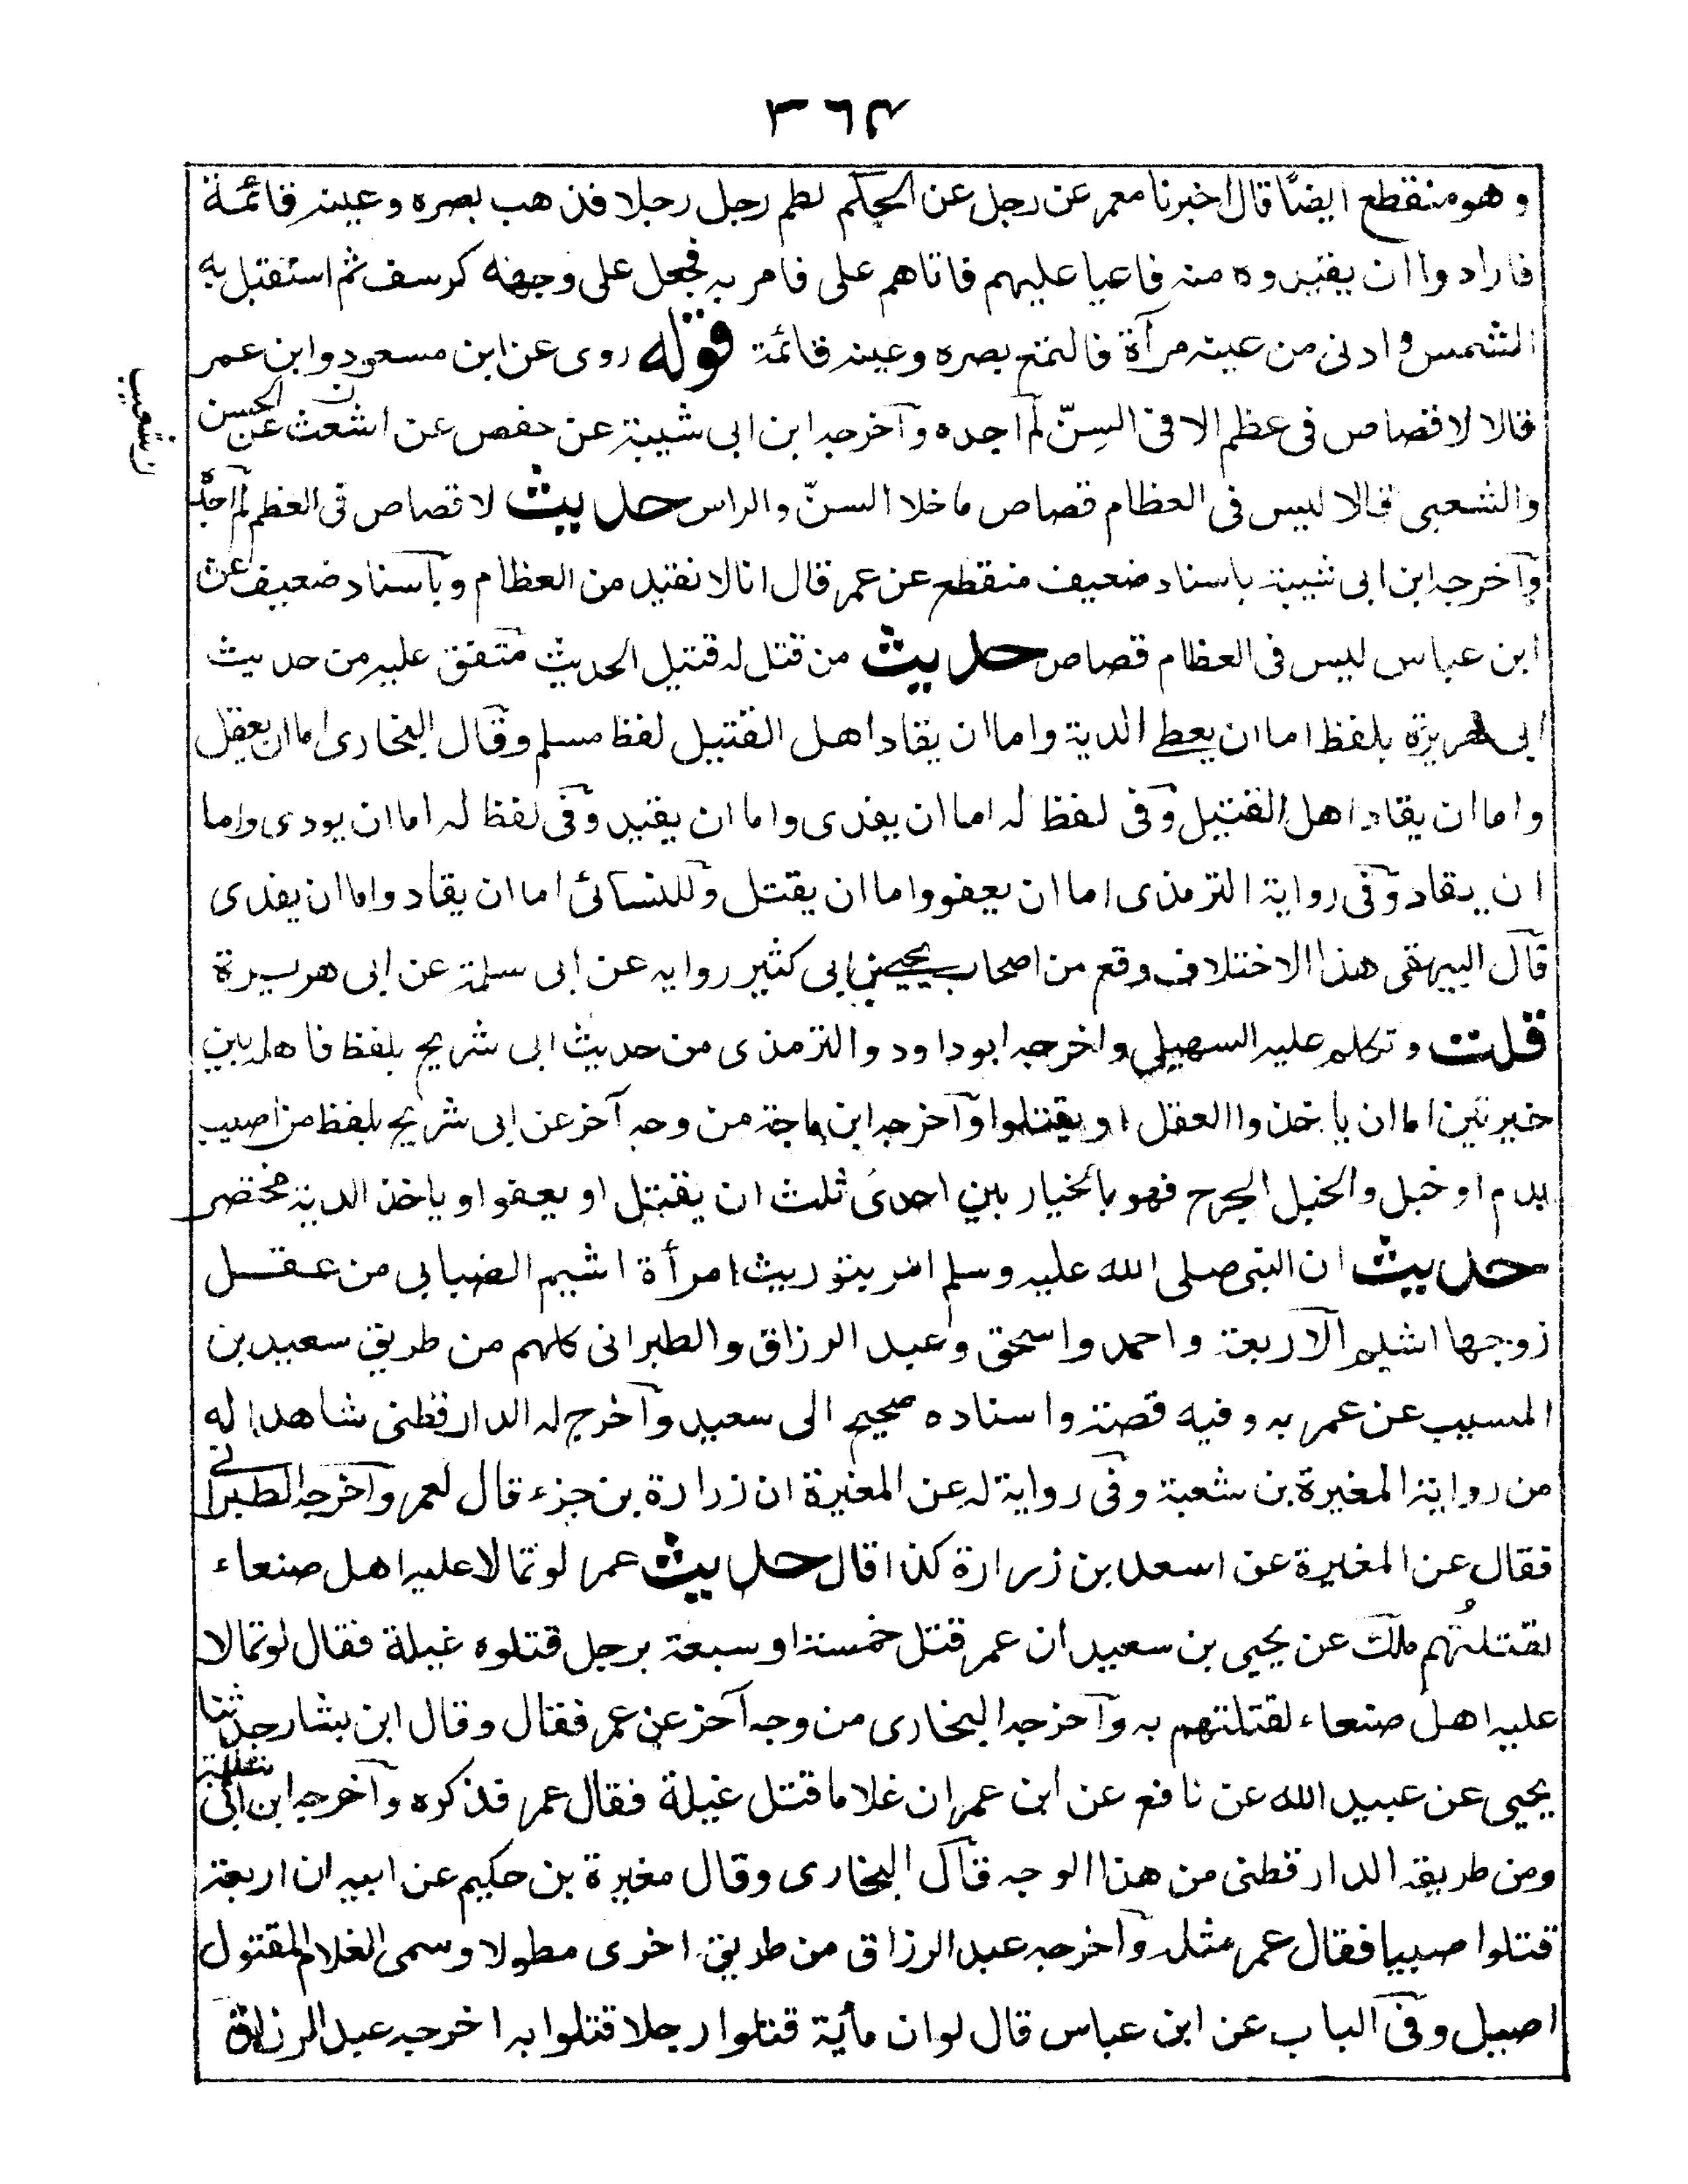 ٣٦٤
وهو منقطع ايضًا قال اخبرنا معمر عن رجل عن الحكم لطم رجل رجلا فذهب بصره وعينه قائمة
فارادوا ان يقيدوه منه فاعيا عليهم فاتاهم على فامر به فجعل على وجهه كرسف ثم استقبل به
الشمس وادنى من عينه مرآة فالتمع بصره وعينه قائمة قوله روى عن ابن مسعود وابن عمر
قالا لا قصاص فى عظم الا فى السِنّ لم اجده وآخرجه ابن ابى شيبة عن حفص عن اشعث عن الحسن
ن شعيب
والشعبى قالا ليس فى العظام قصاص ماخلا السنّ والراس حديث لا قصاص فى العظم لم اجده
وآخرجه ابن ابى شيبة باسناد ضعيف منقطع عن عمر قال انا لا نقيد من العظام وبآسناد ضعيف عن
ابن عباس ليس فى العظام قصاص حديث من قتل له قتيل الحديث متفق عليه من حديث
ابى هريرة بلفظ اما ان يعطے الدية واما ان يقاد اهل القتيل لفظ مسلم وقال البخارى اما ان يعقل
واما ان يقاد اهل القتيل وفى لفظ له اما ان يفدى واما ان يقيد وفى لفظ له اما ان يودى واما
ان يقاد وفى رواية الترمذى اما ان يعفو واما ان يقتل وللنسائى اما ان يقاد واما ان يفدى
قآل البيهقى هذا الاختلاف وقع من اصحاب يحيے بن ابى كثير روايه عن ابى سلمة عن ابى هريرة
قلت وتكلم عليه السهيلى واخرجه ابوداود والترمذى من حديث ابى شريح بلفظ فاهله بين
خيرتين اما ان ياخذوا العقل او يقتلوا وآخرجه ابن ماجة من وجه آخر عن ابى شريح بلفظ من اصيب
بدم او خبل والخبل الجرح فهو بالخيار بين احدى ثلث ان يقتل او يعفو او ياخذ الدية مختصر
حديث ان النبى صلى الله عليه وسلم امر بتوريث امرأة اشيم الضبابى من عقل
زوجها اشيم الآربعة واحمد واسحق وعبد الرزاق والطبرانى كلهم من طريق سعيد بن
المسيب عن عمر به وفيه قصة واسناده صحيح الى سعيد وآخرج له الدارقطنى شاهدا له
من رواية المغيرة بن شعبة وفى رواية له عن المغيرة ان زرارة بن جزء قال لعمر وآخرجه الطبرانے
فقال عن المغيرة عن اسعد بن زرارة كذا قال حديث عمر لو تمالا عليه اهل صنعاء
لقتلتُهم ملك عن يحيى بن سعيد ان عمر قتل خمسة او سبعة برجل قتلوه غيلة فقال لو تمالا
عليه اهل صنعاء لقتلتهم به وآخرجه البخارى من وجه آخر عن عمر فقال وقال ابن بشار حدثنا
يحيى عن عبيد الله عن نافع عن ابن عمر ان غلاما قتل غيلة فقال عمر فذكره وآخرجه ابن ابى شيبة
ومن طريقه الدارقطنى من هذا الوجه قآل البخارى وقال مغيرة بن حكيم عن ابيه ان اربعة
قتلوا صبيا فقال عمر مثله وآخرجه عبد الرزاق من طريق اخرى مطولا وسمى الغلام المقتول
اصيل وفى الباب عن ابن عباس قال لو ان مأية قتلوا رجلا قتلوا به اخرجه عبد الرزاق